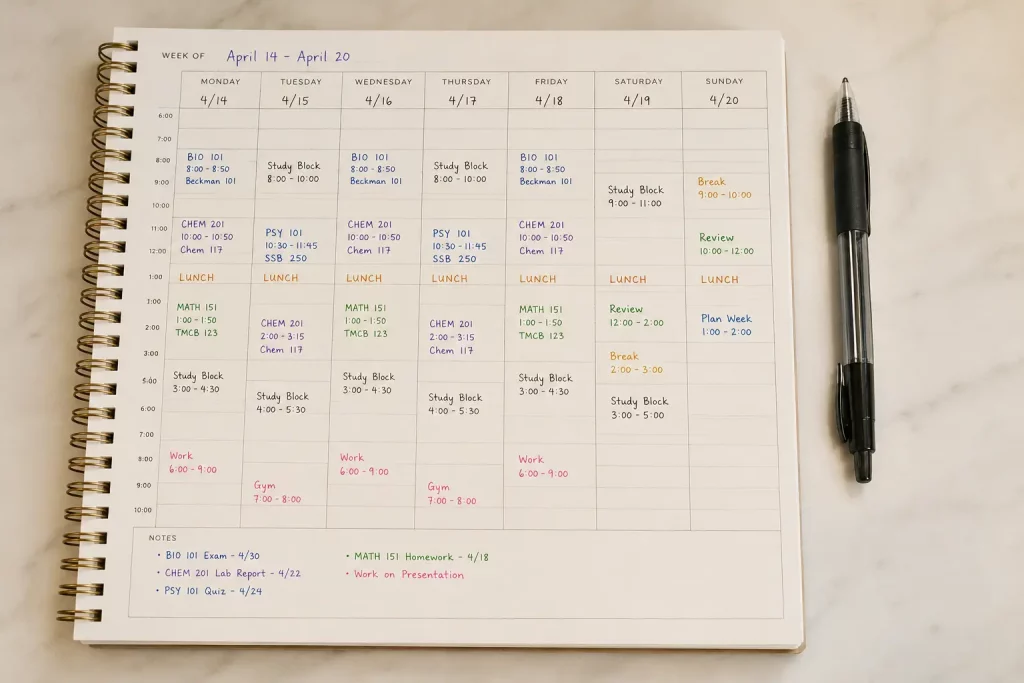 WEEK OF April 14 - April 20
MONDAY TUESDAY WEDNESDAY THURSDAY FRIDAY SATURDAY SUNDAY
4/14 4/15 4/16 4/17 4/18 4/19 4/20
6:00
7:00
8:00
9:00
10:00
11:00
12:00
1:00
1:00
2:00
3:00
5:00
6:00
7:00
8:00
9:00
10:00
BIO 101
8:00 - 8:50
Beckman 101
CHEM 201
10:00 - 10:50
Chem 117
LUNCH
MATH 151
1:00 - 1:50
TMCB 123
Study Block
3:00 - 4:30
Work
6:00 - 9:00
Study Block
8:00 - 10:00
PSY 101
10:30 - 11:45
SSB 250
LUNCH
CHEM 201
2:00 - 3:15
Chem 117
Study Block
4:00 - 5:30
Gym
7:00 - 8:00
BIO 101
8:00 - 8:50
Beckman 101
CHEM 201
10:00 - 10:50
Chem 117
LUNCH
MATH 151
1:00 - 1:50
TMCB 123
Study Block
3:00 - 4:30
Work
6:00 - 9:00
Study Block
8:00 - 10:00
PSY 101
10:30 - 11:45
SSB 250
LUNCH
CHEM 201
2:00 - 3:15
Chem 117
Study Block
4:00 - 5:30
Gym
7:00 - 8:00
BIO 101
8:00 - 8:50
Beckman 101
CHEM 201
10:00 - 10:50
Chem 117
LUNCH
MATH 151
1:00 - 1:50
TMCB 123
Study Block
3:00 - 4:30
Work
6:00 - 9:00
Study Block
9:00 - 11:00
LUNCH
Review
12:00 - 2:00
Break
2:00 - 3:00
Study Block
3:00 - 5:00
Break
9:00 - 10:00
Review
10:00 - 12:00
LUNCH
Plan Week
1:00 - 2:00
NOTES
• BIO 101 Exam - 4/30
• CHEM 201 Lab Report - 4/22
• PSY 101 Quiz - 4/24
• MATH 151 Homework - 4/18
• Work on Presentation